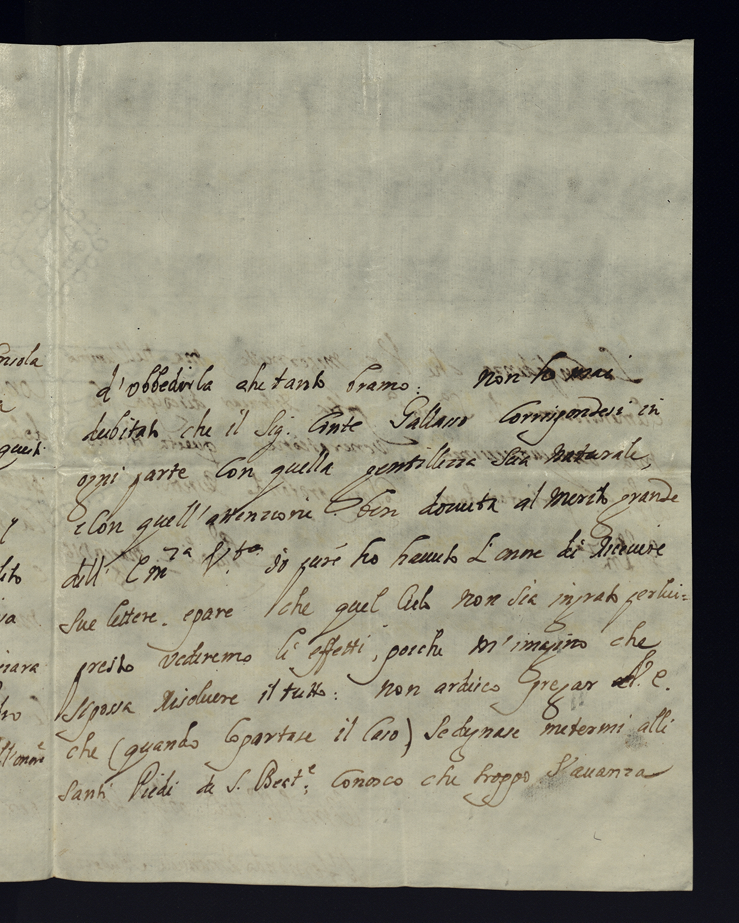 d'obbedirla che tanto bramo: non ho mai
dubitato che il Sig. Conte Gallasso Corrispondese in
ogni parte Con quella gentillezza Sua naturale,
e Con quell'attenzioni ben douuta al merito grande
dell' Em.za V.tra Io pure ho hauuto L'onore di riceuere
Sue lettere. e pare che quel Cielo non sia ingrato per lui=
presto Vedremo li effetti, poiche m'imagino che
si possa risoluere il tutto: non ardisco pregar V. E.
che (quando Coportase il Caso) Se degnase metermi alli
Santi Piedi di S. Beat.e, Conosco che troppo S'auanza